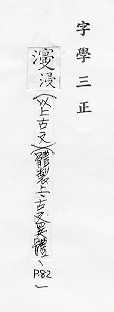 字學三正
漫浸(以上古文)(體製上、古文異體、P.82)